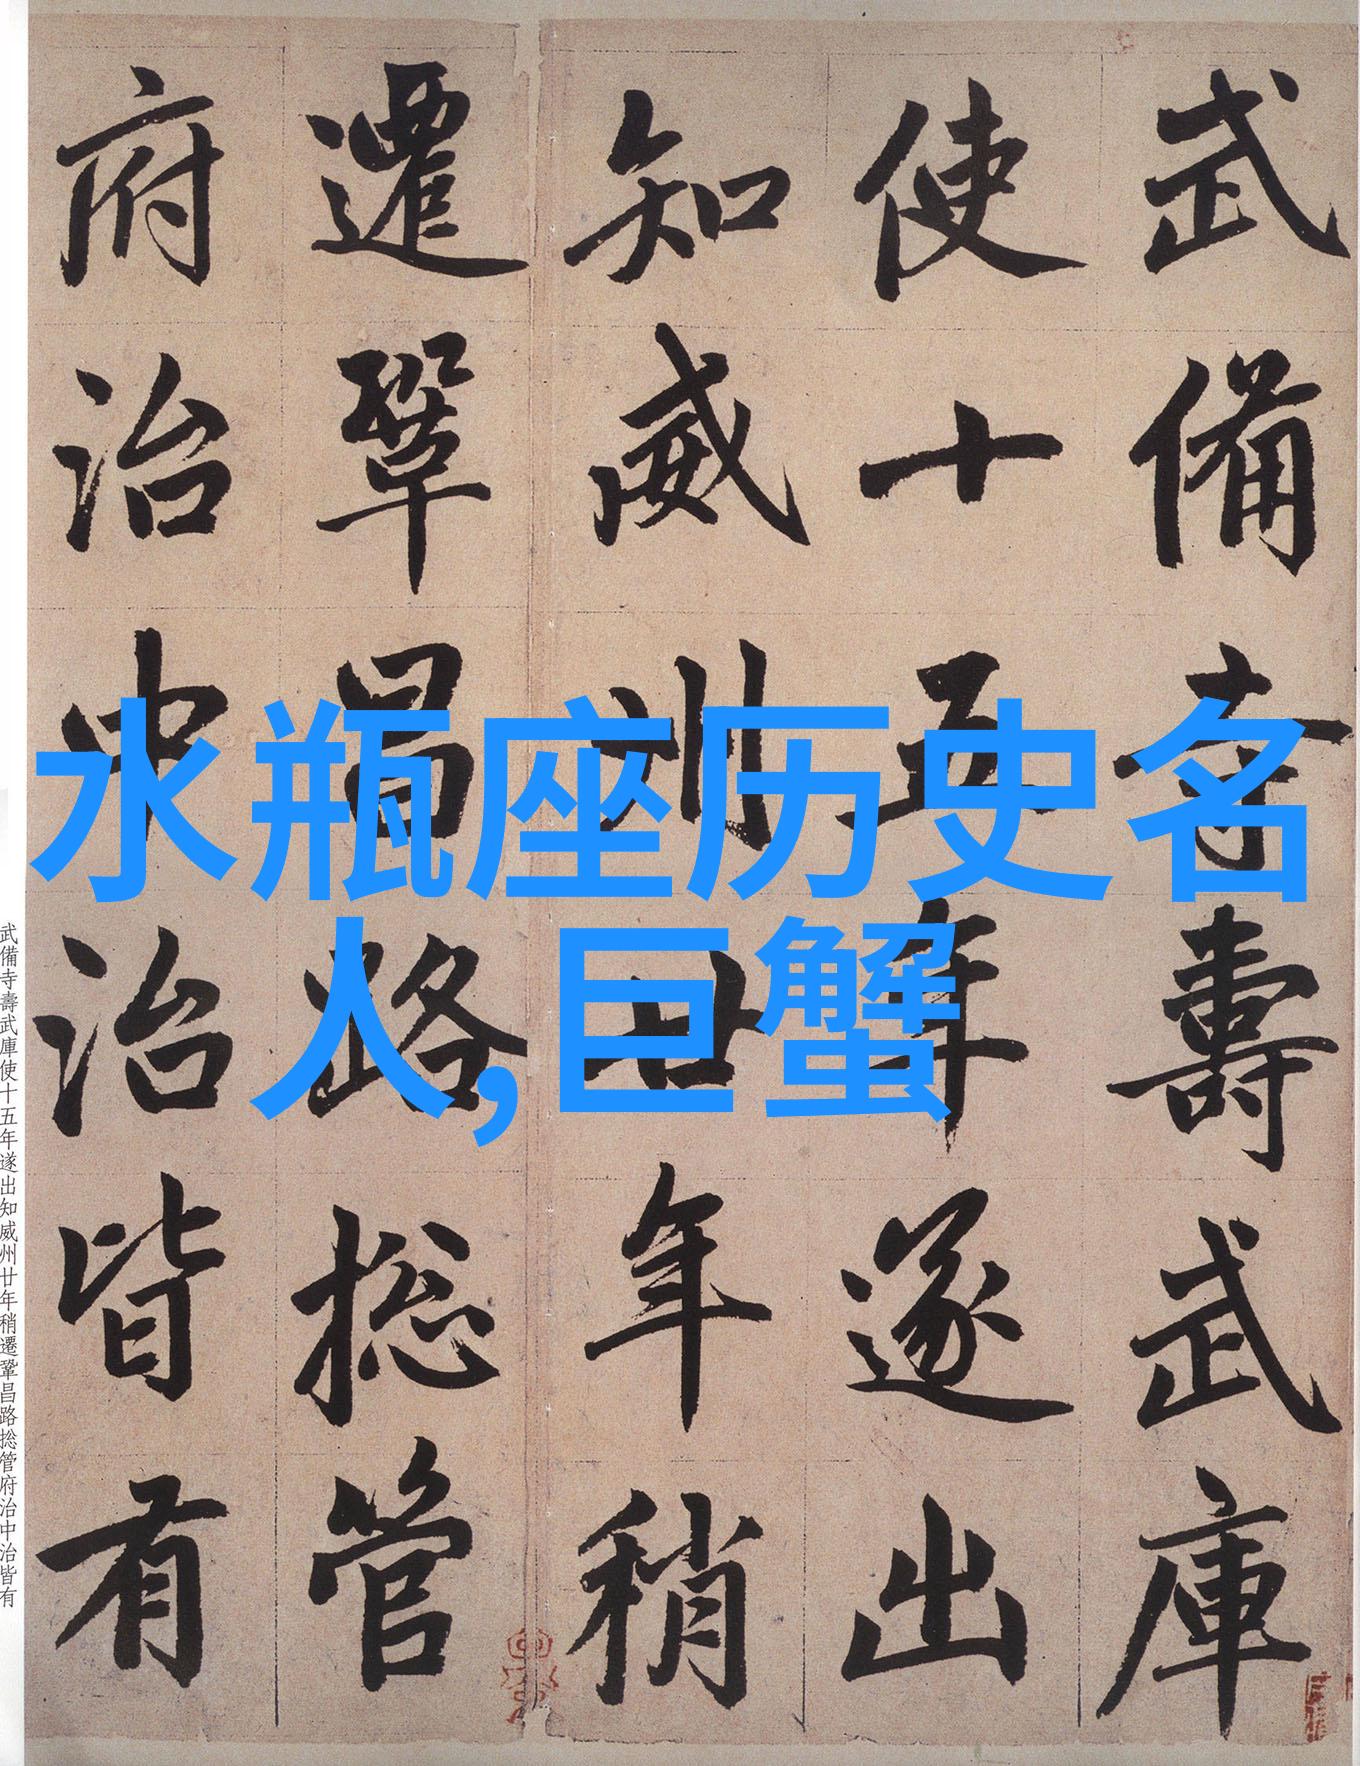 武備寺壽武庫
使十五年遂出
知威州廿年稍
遷鞏昌路捴管
府治中治皆有
水瓶座历史名
人,巨蟹
武備寺壽武庫使十五年遂出知威州廿年稍遷鞏昌路捴管府治中治皆有